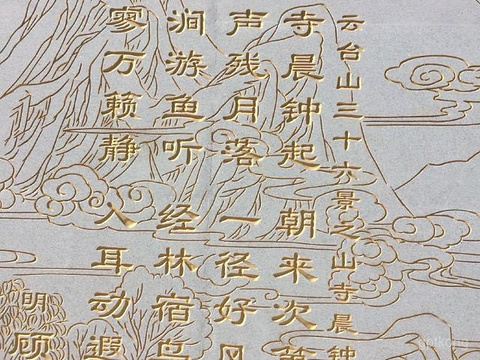 云台山三十六景之山寺晨钟
寺晨钟起 朝来次
声残月落 一径好风
涧游鱼听 经林宿鸟
寥万籁静 入耳动遐
明顾